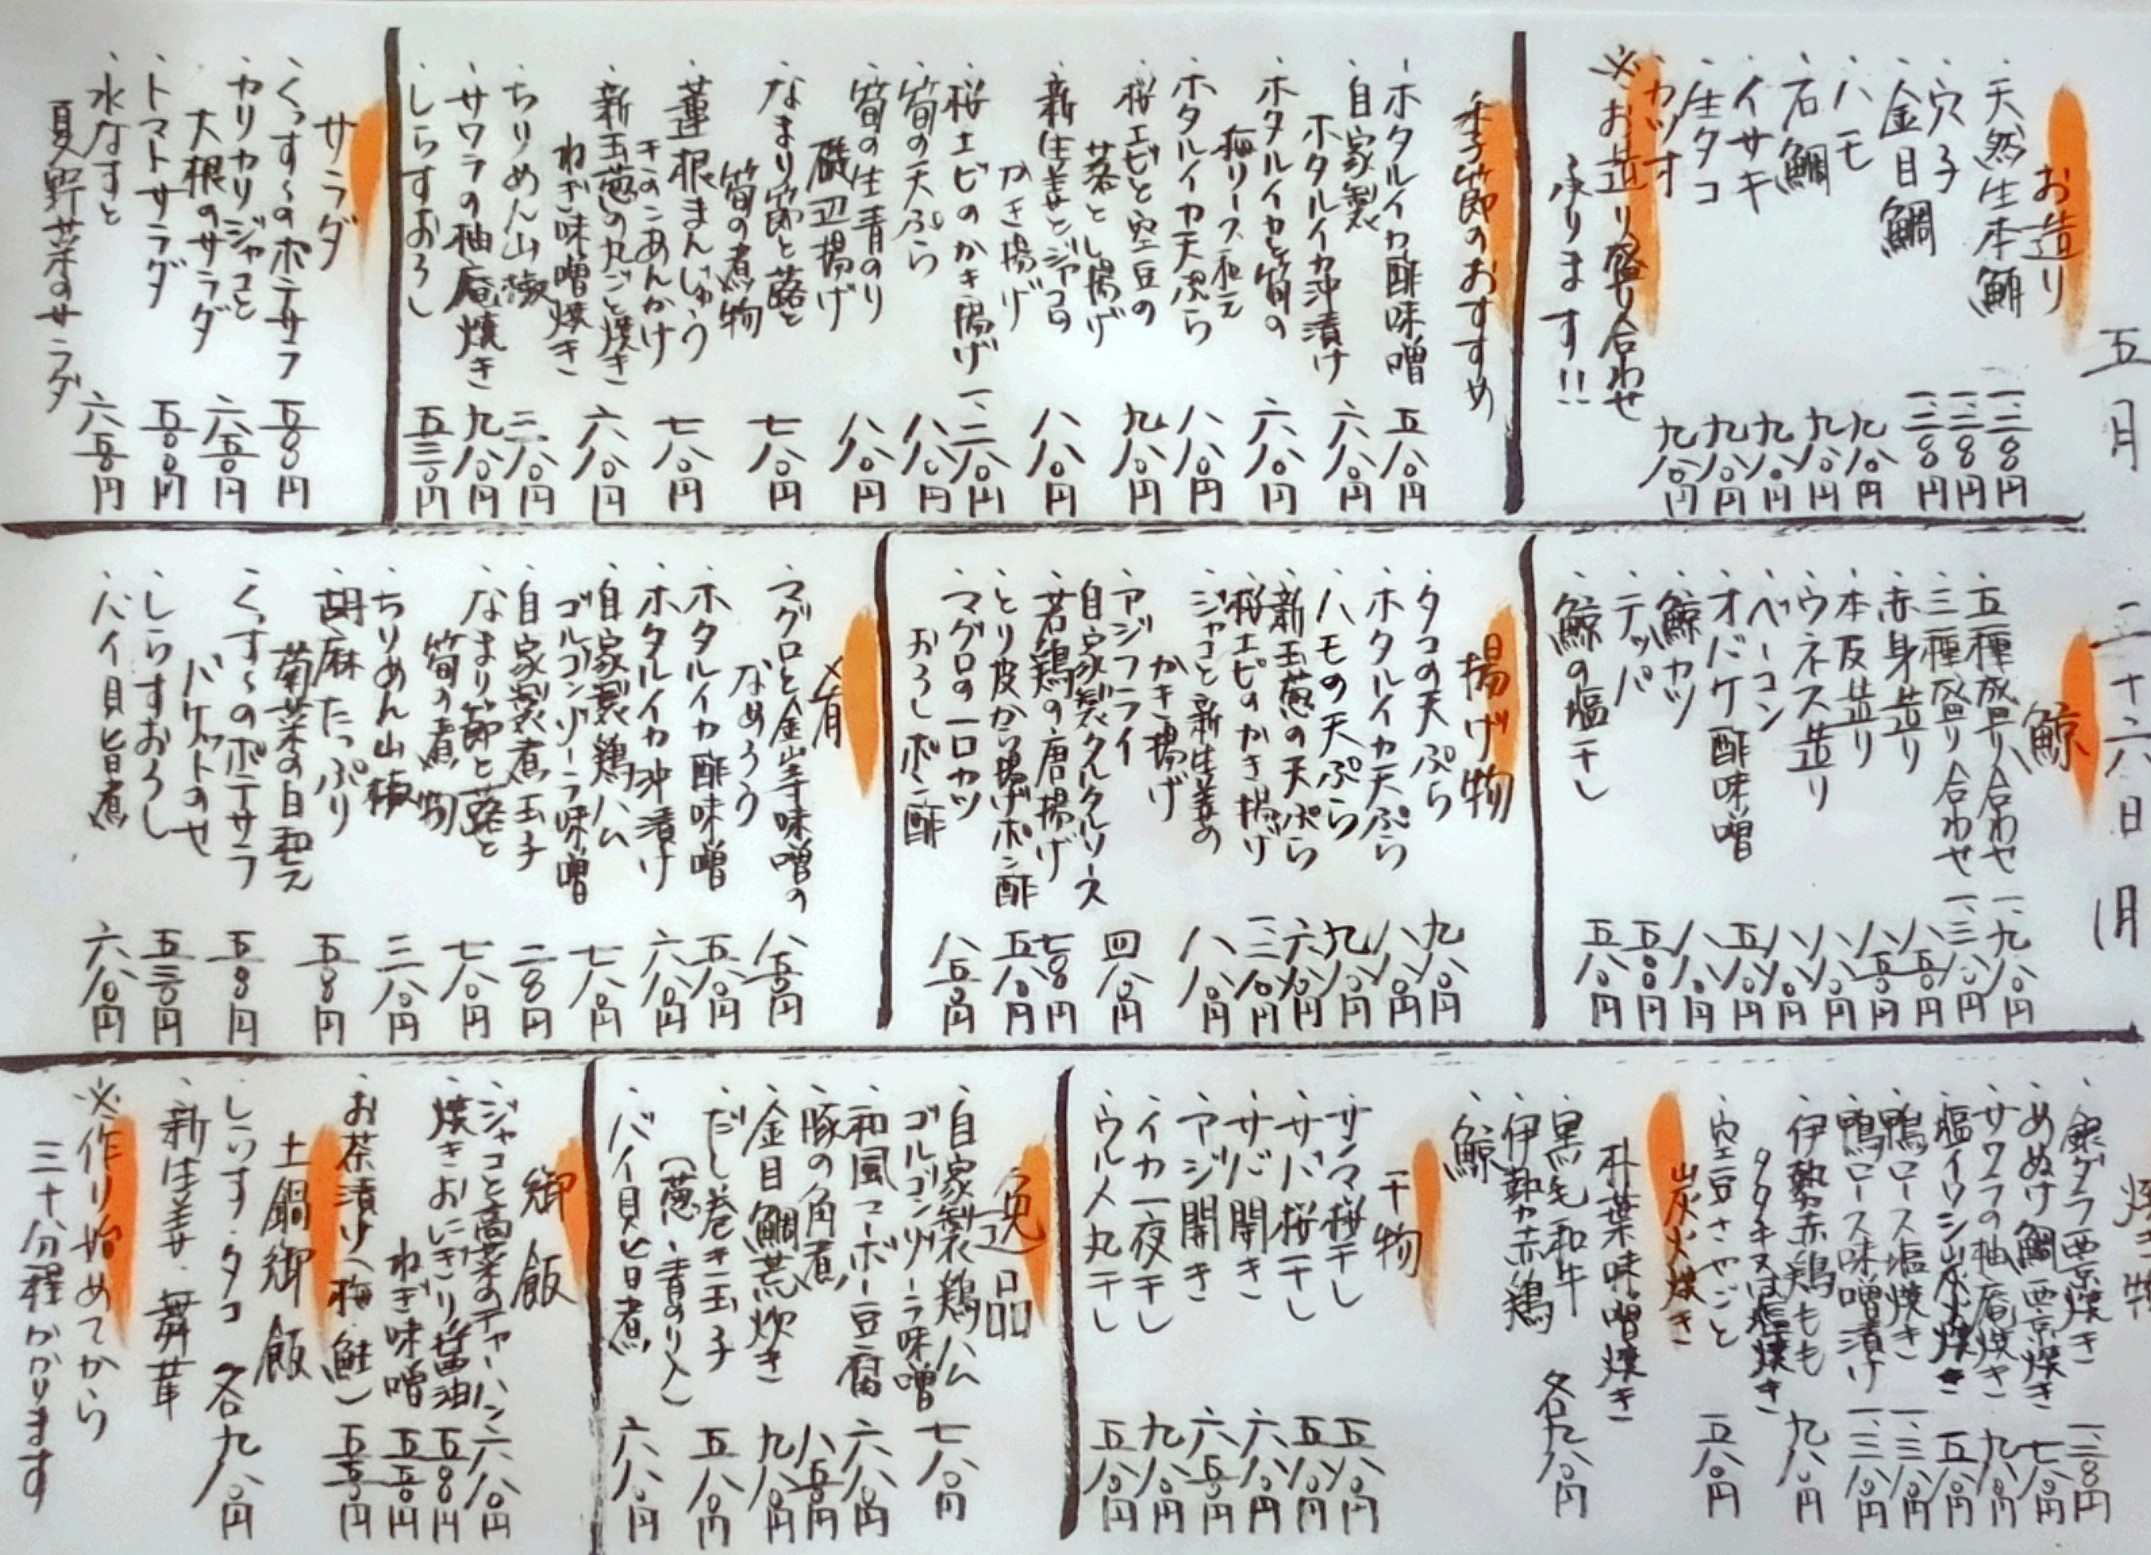 五月 二十六日 月
お造り
・天然生本鮪 一、二八〇円
・穴子 一、二八〇円
・金目鯛 一、二八〇円
・ハモ 九八〇円
・石鯛 九八〇円
・イサキ 九八〇円
・生タコ 九八〇円
・カツオ 九八〇円
※お造り盛り合わせ
承ります!!
季節のおすすめ
・ホタルイカ酢味噌 五八〇円
・自家製
ホタルイカ沖漬け 六八〇円
・ホタルイカと筍の
梅リース和え 六八〇円
・ホタルイカ天ぷら 八八〇円
・桜エビと空豆の
落とし揚げ 九八〇円
・新生姜とジャコの
かき揚げ 八八〇円
・桜エビのかき揚げ 一、二八〇円
・筍の天ぷら 八八〇円
・筍の生青のり
磯辺揚げ 八八〇円
・なまり節と蕗と
筍の煮物 七八〇円
・蓮根まんじゅう
キのこあんかけ 七八〇円
・新玉葱の丸ごと焼き
ねぎ味噌焼き 六八〇円
・ちりめん山椒 三八〇円
・サワラの柚庵焼き 九八〇円
・しらすおろし 五三〇円
サラダ
・くっす〜のポテサラ 五八〇円
・カリカリジャコと
大根のサラダ 六五〇円
・トマトサラダ 五〇〇円
・水なすと
夏野菜のサラダ 六五〇円
鯨
・五種盛り合わせ 一、九八〇円
・三種盛り合わせ 一、三八〇円
・赤身造り 八五〇円
・本皮造り 八五〇円
・ウネス造り 八八〇円
・ベーコン 八八〇円
・オバケ酢味噌 五八〇円
・鯨カツ 八八〇円
・テッパ 五〇〇円
・鯨の塩干し 五八〇円
揚げ物
・タコの天ぷら 九八〇円
・ホタルイカ天ぷら 八八〇円
・ハモの天ぷら 九八〇円
・新玉葱の天ぷら
・桜エビのかき揚げ
・ジャコと新生姜の
かき揚げ 八八〇円
・アジフライ
自家製タルタルソース 四八〇円
・若鶏の唐揚げ 七八〇円
・とり皮から揚げポン酢 五八〇円
・マグロの一口カツ
おろしポン酢 八五〇円
肴
・マグロと金山寺味噌の
なめろう 八五〇円
・ホタルイカ酢味噌 五八〇円
・ホタルイカ沖漬け 六八〇円
・自家製鶏ハム
ゴルゴンゾーラ味噌 七八〇円
・自家製煮玉子 二八〇円
・なまり節と蕗と
筍の煮物 七八〇円
・ちりめん山椒 三八〇円
・胡麻たっぷり
菊菜の白和え 五八〇円
・くっす〜のポテサラ
バケットのせ 五八〇円
・しらすおろし 五三〇円
・バイ貝旨煮 六八〇円
焼き物
・銀ダラ西京焼き 一、二八〇円
・めぬけ鯛西京焼き 七八〇円
・サワラの柚庵焼き 九八〇円
・塩イワシ炭火焼き 五八〇円
・鴨ロース塩焼き 一、三八〇円
・鴨ロース味噌漬け 一、三八〇円
・伊勢赤鶏もも
タタキ又は塩焼き 九八〇円
・空豆さやごと
炭火焼き 五八〇円
朴葉味噌焼き
・黒毛和牛
・伊勢赤鶏
・鯨 各九八〇円
干物
・サンマ桜干し 五八〇円
・サバ桜干し 五八〇円
・サバ開き 六八〇円
・アジ開き 六五〇円
・イカ一夜干し 九八〇円
・ウルメ丸干し 五八〇円
逸品
・自家製鶏ハム
ゴルゴンゾーラ味噌 七八〇円
・和風マーボー豆腐 六八〇円
・豚の角煮 八五〇円
・金目鯛荒炊き 九八〇円
・だし巻き玉子
(葱・青のり入) 五八〇円
・バイ貝旨煮 六八〇円
御飯
・ジャコと高菜のチャーハン 六八〇円
・焼きおにぎり醤油 五〇〇円
ねぎ味噌 五五〇円
・お茶漬け(梅・鮭) 五五〇円
土鍋御飯
・しらす・タコ
・新生姜・舞茸 各九八〇円
※作り始めてから
三十分程かかります